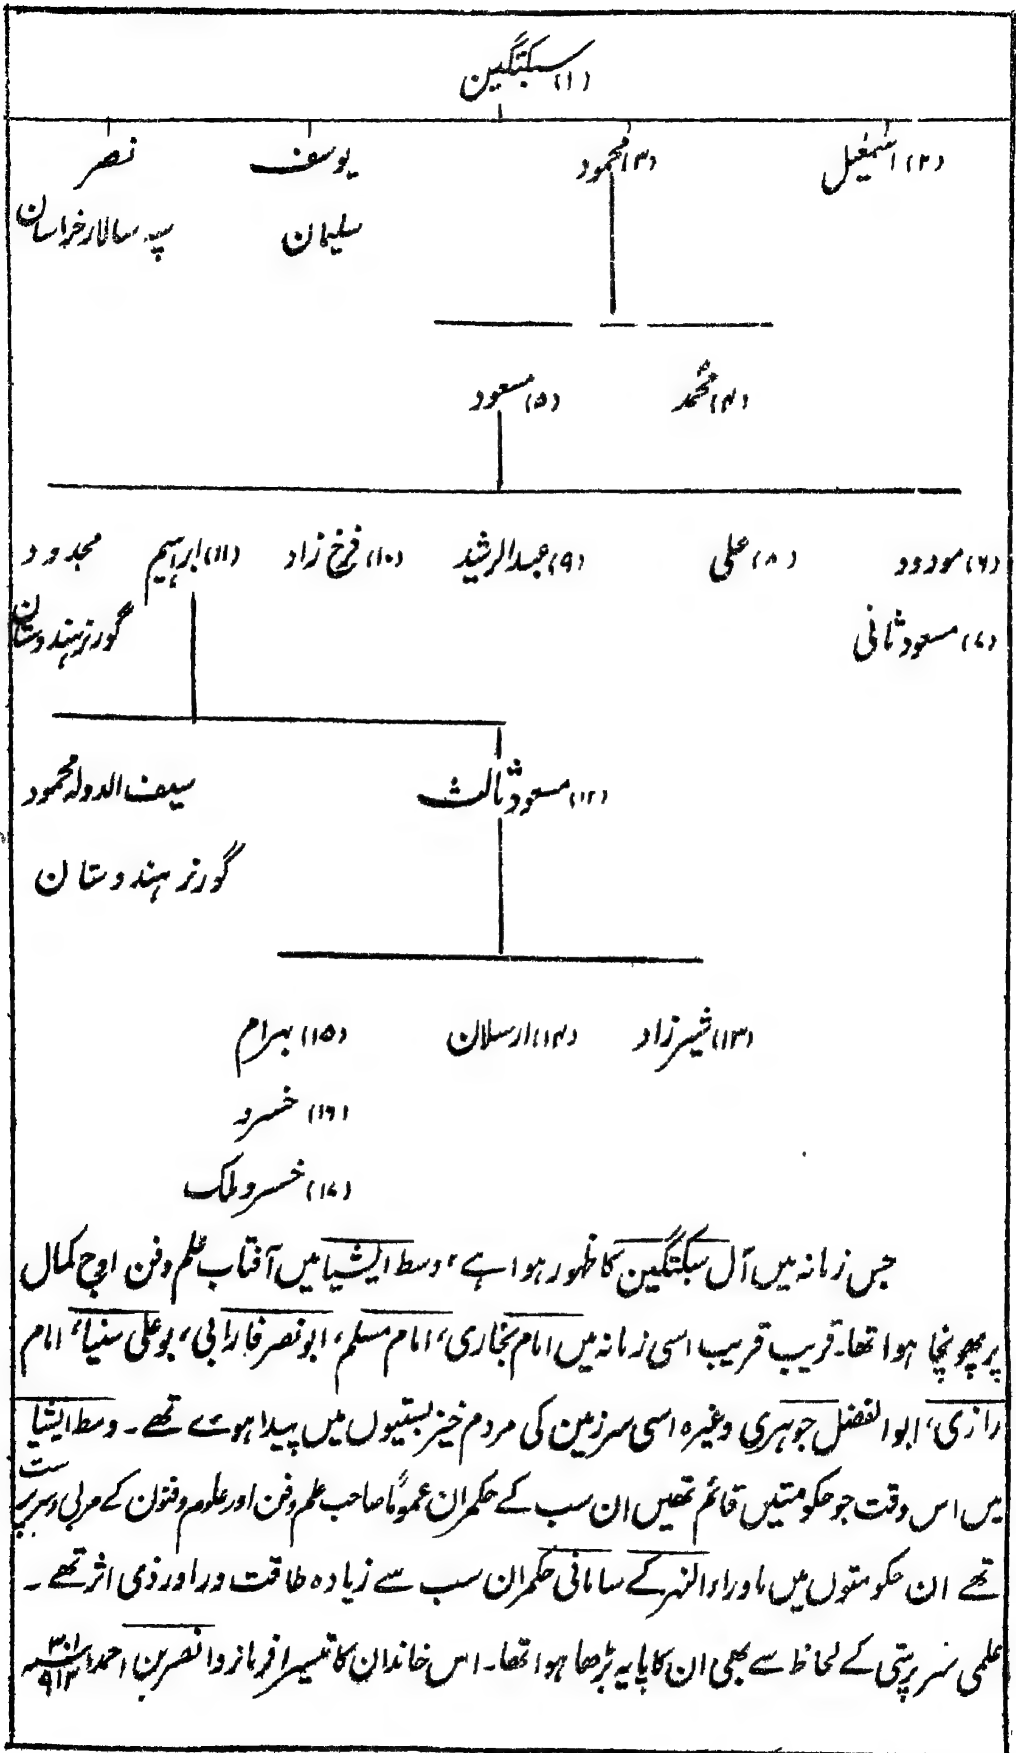 (۱) سبکتگین
(۲) اسمٰعیل (۳) محمود یوسف نصر
سلیمان سپہ سالار خراسان
(۴) محمد (۵) مسعود
(۶) مودود (۸) علی (۹) عبدالرشید (۱۰) فرخ زاد (۱۱) ابراہیم مجدود
(۷) مسعود ثانی گورنر ہندوستان
(۱۲) مسعود ثالث سیف الدولہ محمود
گورنر ہندوستان
(۱۳) شیرزاد (۱۴) ارسلان (۱۵) بہرام
(۱۶) خسرو
(۱۷) خسرو ملک
جس زمانہ میں آل سبکتگین کا ظہور ہوا ہے، وسط ایشیا میں آفتاب علم و فن اوج کمال
پر پھونچا ہوا تھا۔ قریب قریب اسی زمانہ میں امام بخاری، امام مسلم، ابو نصر فارابی، بو علی سنیا، امام
رازی، ابوالفضل جوہری وغیرہ اسی سرزمین کی مردم خیز بستیوں میں پیدا ہوے تھے۔ وسط ایشیا
میں اس وقت جو حکومتیں قائم تھیں ان سب کے حکمران عموماً صاحب علم و فن اور علوم و فنون کے مربی و سرپرست
تھے ان حکومتوں میں ماوراء النہر کے سامانی حکمران سب سے زیادہ طاقت ور اور ذی اثر تھے۔
علمی سرپرستی کے لحاظ سے بھی ان کا پایہ بڑھا ہوا تھا۔ اس خاندان کا تیسرا فرمانروا نصر بن احمد ۳۰۱ ۹۱۳